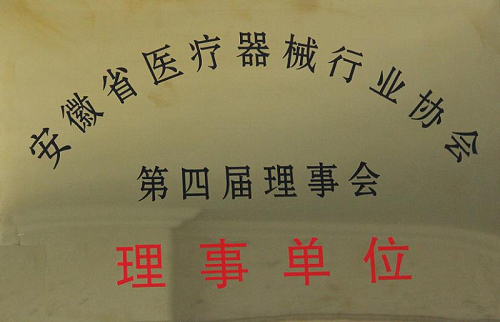 安徽省医疗器械行业协会
第四届理事会
理事单位